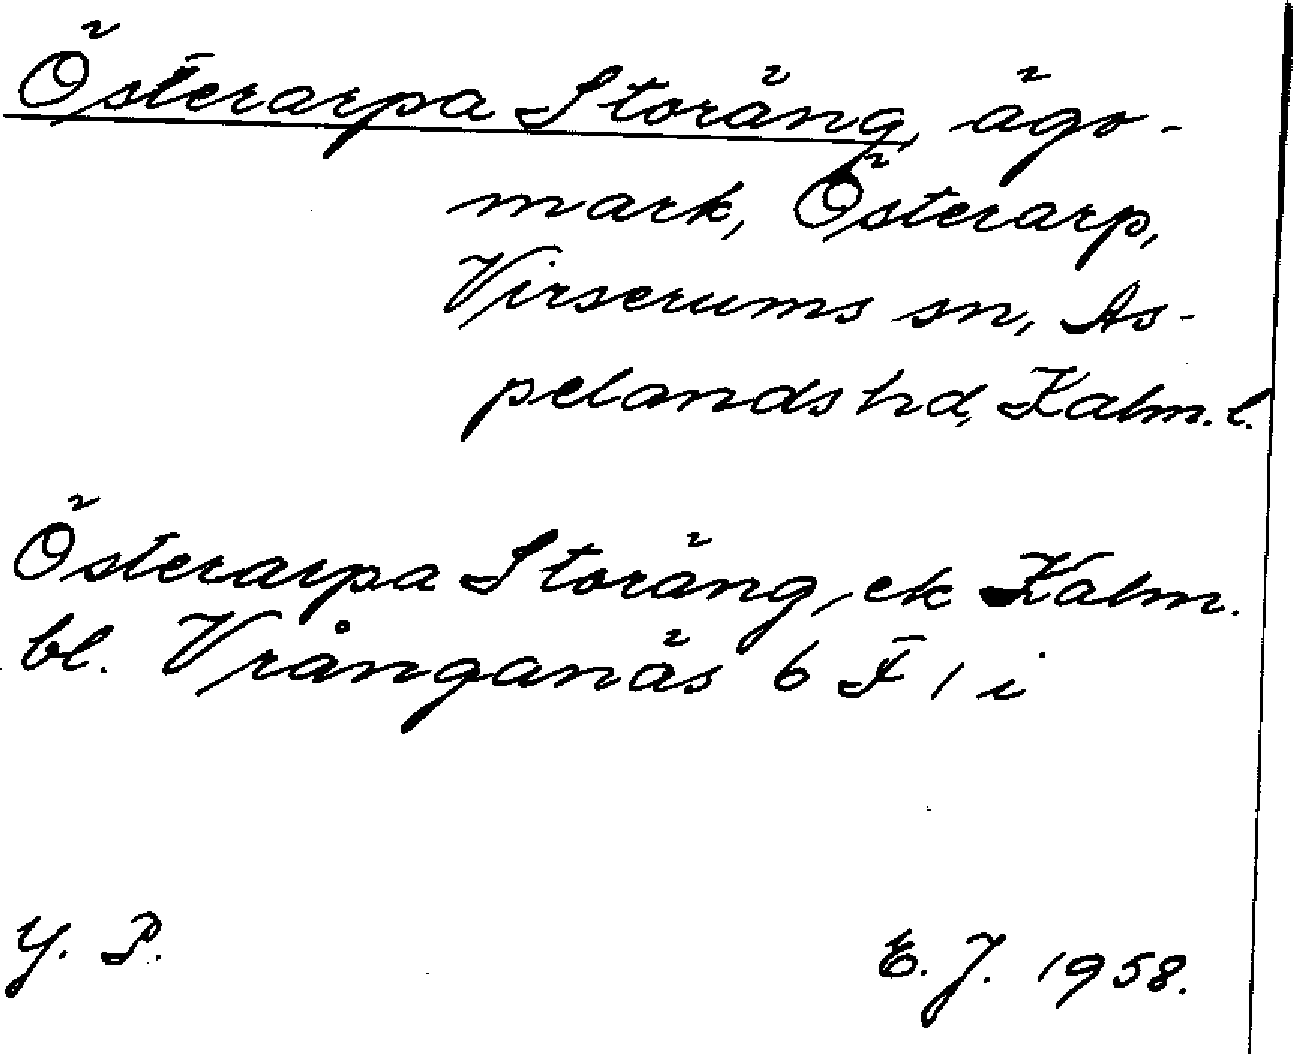 Österarpa Storäng, ägo-
mark, Österarp,
Virserums sn, As-
pelands hd, Kalm. l.
Österarpa Storäng, ek Kalm.
bl. Vrånganäs 6 F 1 i
Y. P.
E. J. 1958.